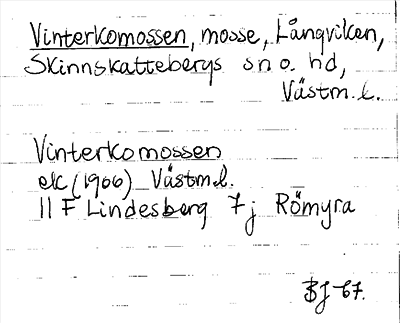 Vinterkomossen, mosse, Långviken,
Skinnskattebergs sn o. hd,
Västm.l.
Vinterkomossen
ek (1906) Västm.l.
11 F Lindesberg 7j Römyra
BJ 67.